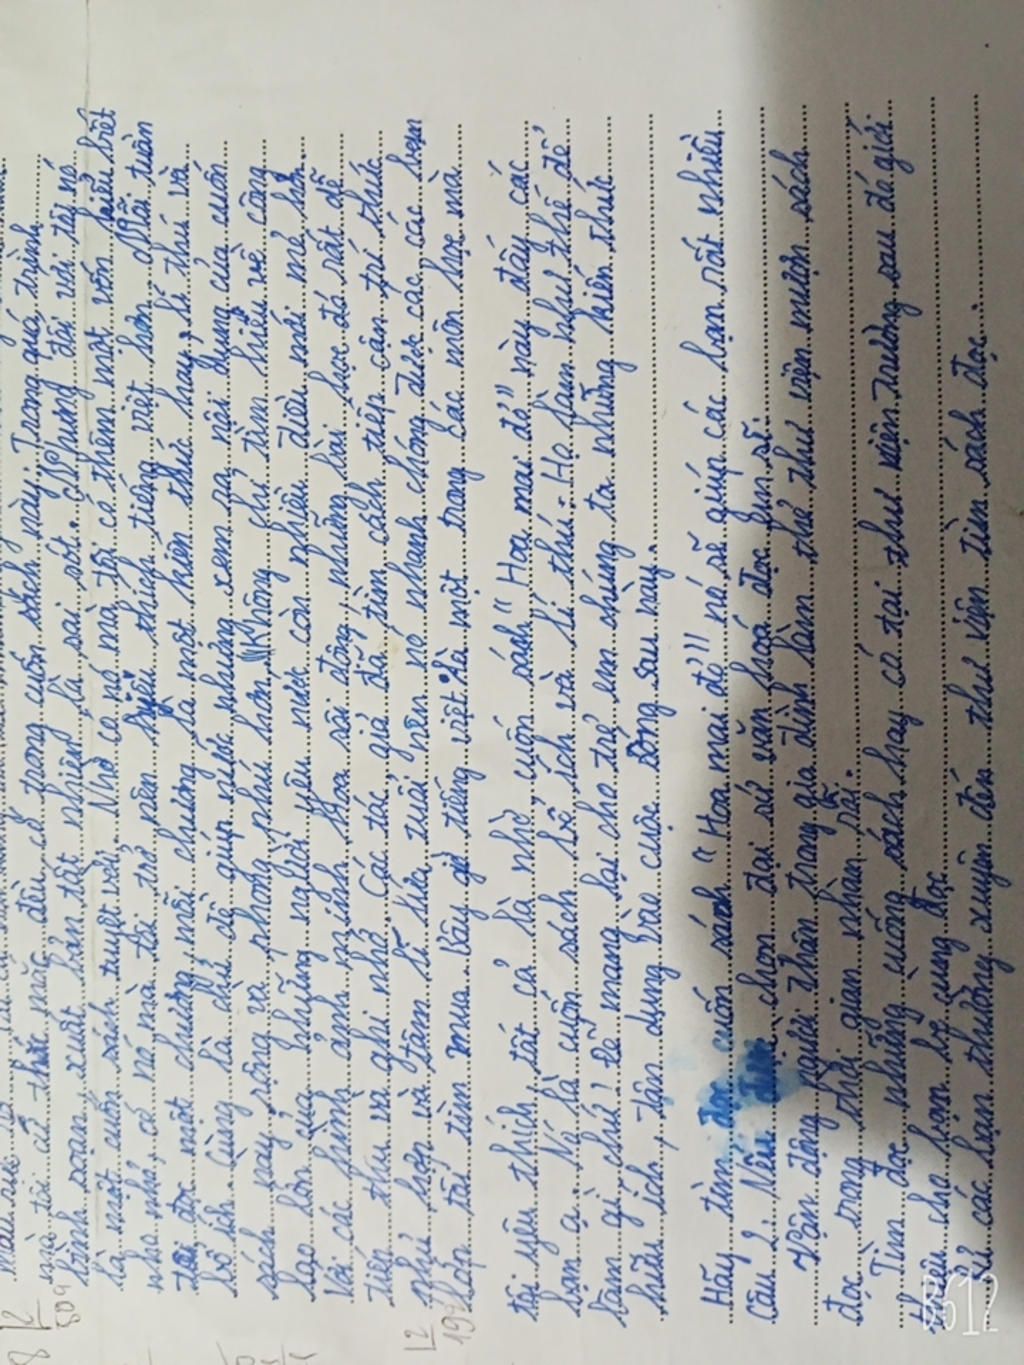 mà tôi có thắc mắc đều có trong cuốn sách này. Trong quá trình
biên soạn, xuất bản tất nhiên là sai sót. Nhưng đối với tôi nó
là một cuốn sách tuyệt vời. Nhờ có nó mà tôi có thêm một vốn hiểu biết
nho nhỏ, có nó mà tôi trở nên yêu thích tiếng việt hơn. Mỗi tuần
tôi đọc một chương, mỗi chương là một kiến thức hay, lí thú và
bổ ích. Cùng là chủ đề giúp nước nhưng xem ra nội dung của cuốn
sách này rộng và phong phú hơn. Không chỉ tìm hiểu về công
lao lớn của những người yêu nước còn nhiều điều mới mẻ hơn
với các hình ảnh minh họa sôi động, những bài học đó rất dễ
tiếp thu và ghi nhớ. Các tác giả đã tìm cách tiếp cận tri thức
phù hợp và tâm lí lứa tuổi nên nó nhanh chóng được các các bạn
nhỏ tìm mua. Bây giờ tiếng việt là một trong các môn học mà
tôi yêu thích, tất cả là nhờ cuốn sách "Hoa mai đỏ" này đấy các
bạn ạ. Nó là cuốn sách bổ ích và lí thú. Họ làm như thế để
làm gì chứ! Để mang lại cho trẻ em chúng ta những kiến thức
hữu ích, tận dụng vào cuộc sống sau này.
Hãy tìm đọc cuốn sách "Hoa mai đỏ"!! nó sẽ giúp các bạn rất nhiều
Câu 2. Nếu được chọn đại sứ văn hoá đọc em sẽ:
Vận động người thân trong gia đình làm thẻ thư viện mượn sách
đọc trong thời gian nhàn rỗi.
Tìm đọc những cuống sách hay có tại thư viện trường sau đó giới
thiệu cho bạn bè cùng đọc
các bạn thường xuyên đến thư viện tìm sách đọc.
B612